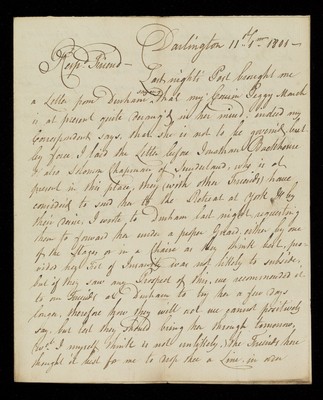 Darlington 11th 1mo 1801 —
Respd Friend —
Last night's Post brought me
a Letter from Durham that my Cousin Peggy March
is at present quite derang'd in her mind; indeed my
Correspondent says, that she is not to be govern'd but
by force, I laid the Letter before Jonathan Backhouse
& also Solomon Chapman of Sunderland, who is at
present in this place, they (with other Friends) have
concluded to send her to the Retreat at York, & by
their desire, I wrote to Durham last night requesting
them to forward her under a proper Guard, either by one
of the Stages, or in a Chaise as they think best, pro-
vided her Fit of Insanity was not likely to subside,
but if they saw any Prospect of this, we recommended it
to our Friends at Durham to try her a few days
longer, therefore how they will act we cannot positively
say, but lest they should bring her through tomorrow,
I myself think is not unlikely, the Friends here
thought it best for me to drop thee a Line, in order